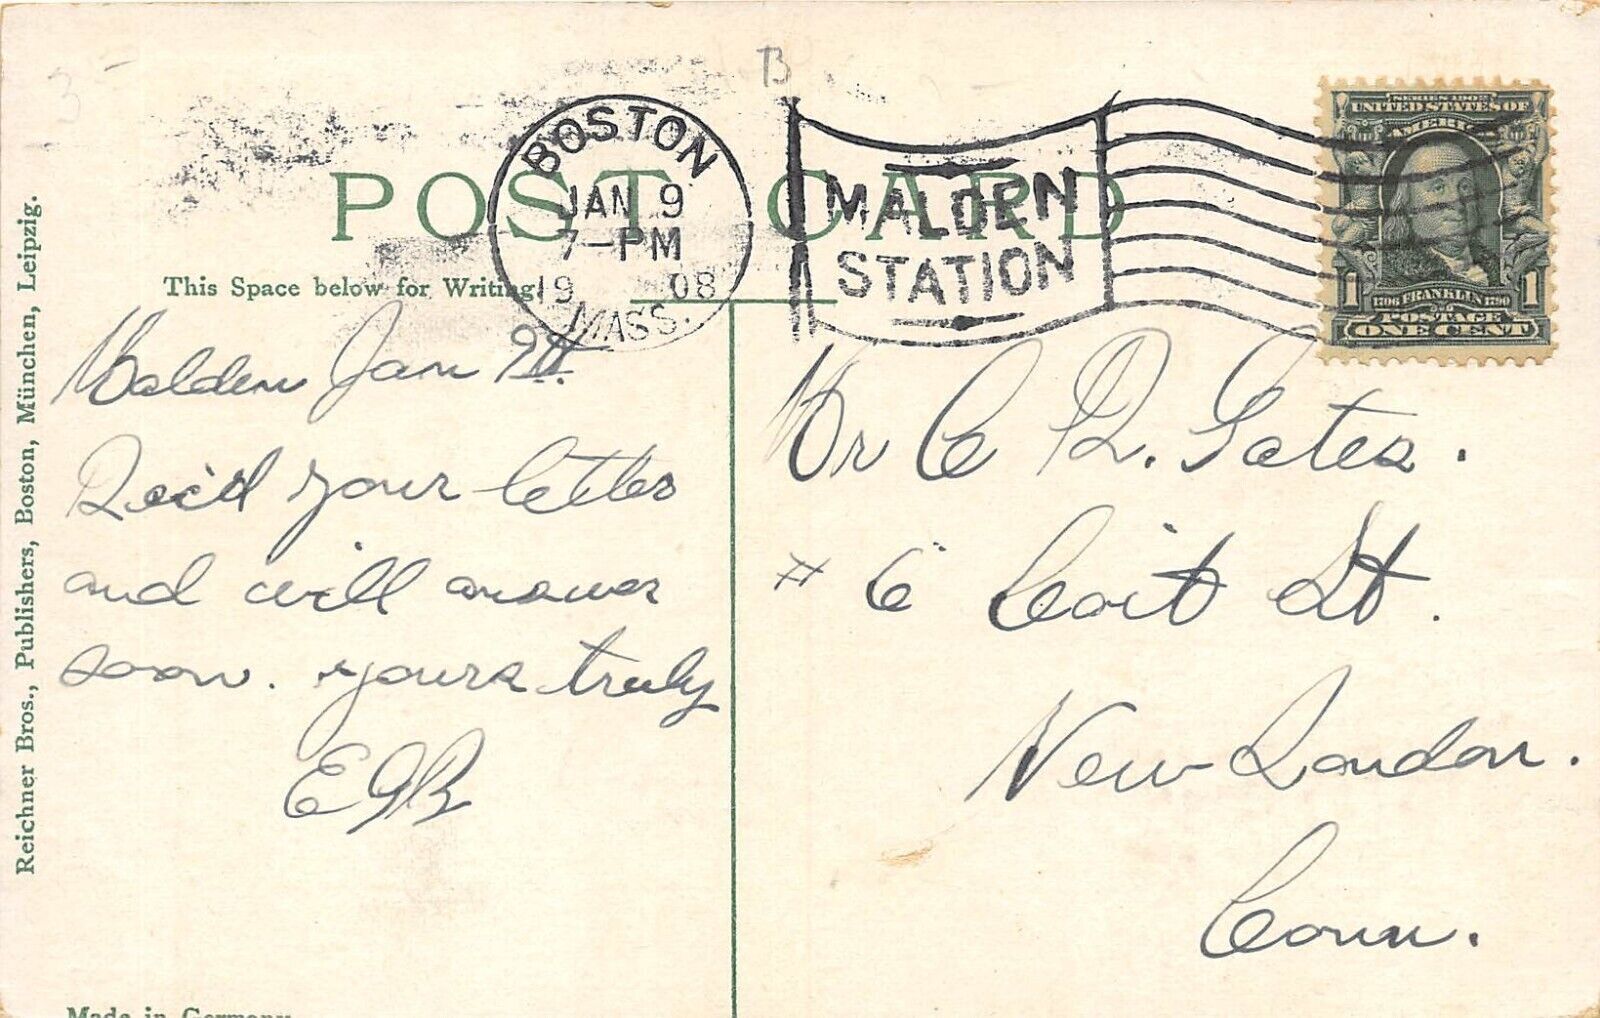 3-
B
BOSTON
JAN 9
7-PM
1908
MASS.
MALDEN
STATION
SERIES 1902
UNITED STATES OF
AMERICA
1 1706 FRANKLIN 1790 1
POSTAGE
ONE CENT
POST CARD
This Space below for Writing
Malden Jan 9th.
Rec'd your letter
and will answer
soon. yours truly
Mr C R. Gates.
# 6 Coit St.
New London.
Conn.
Reichner Bros., Publishers, Boston, München, Leipzig.
Made in Germany